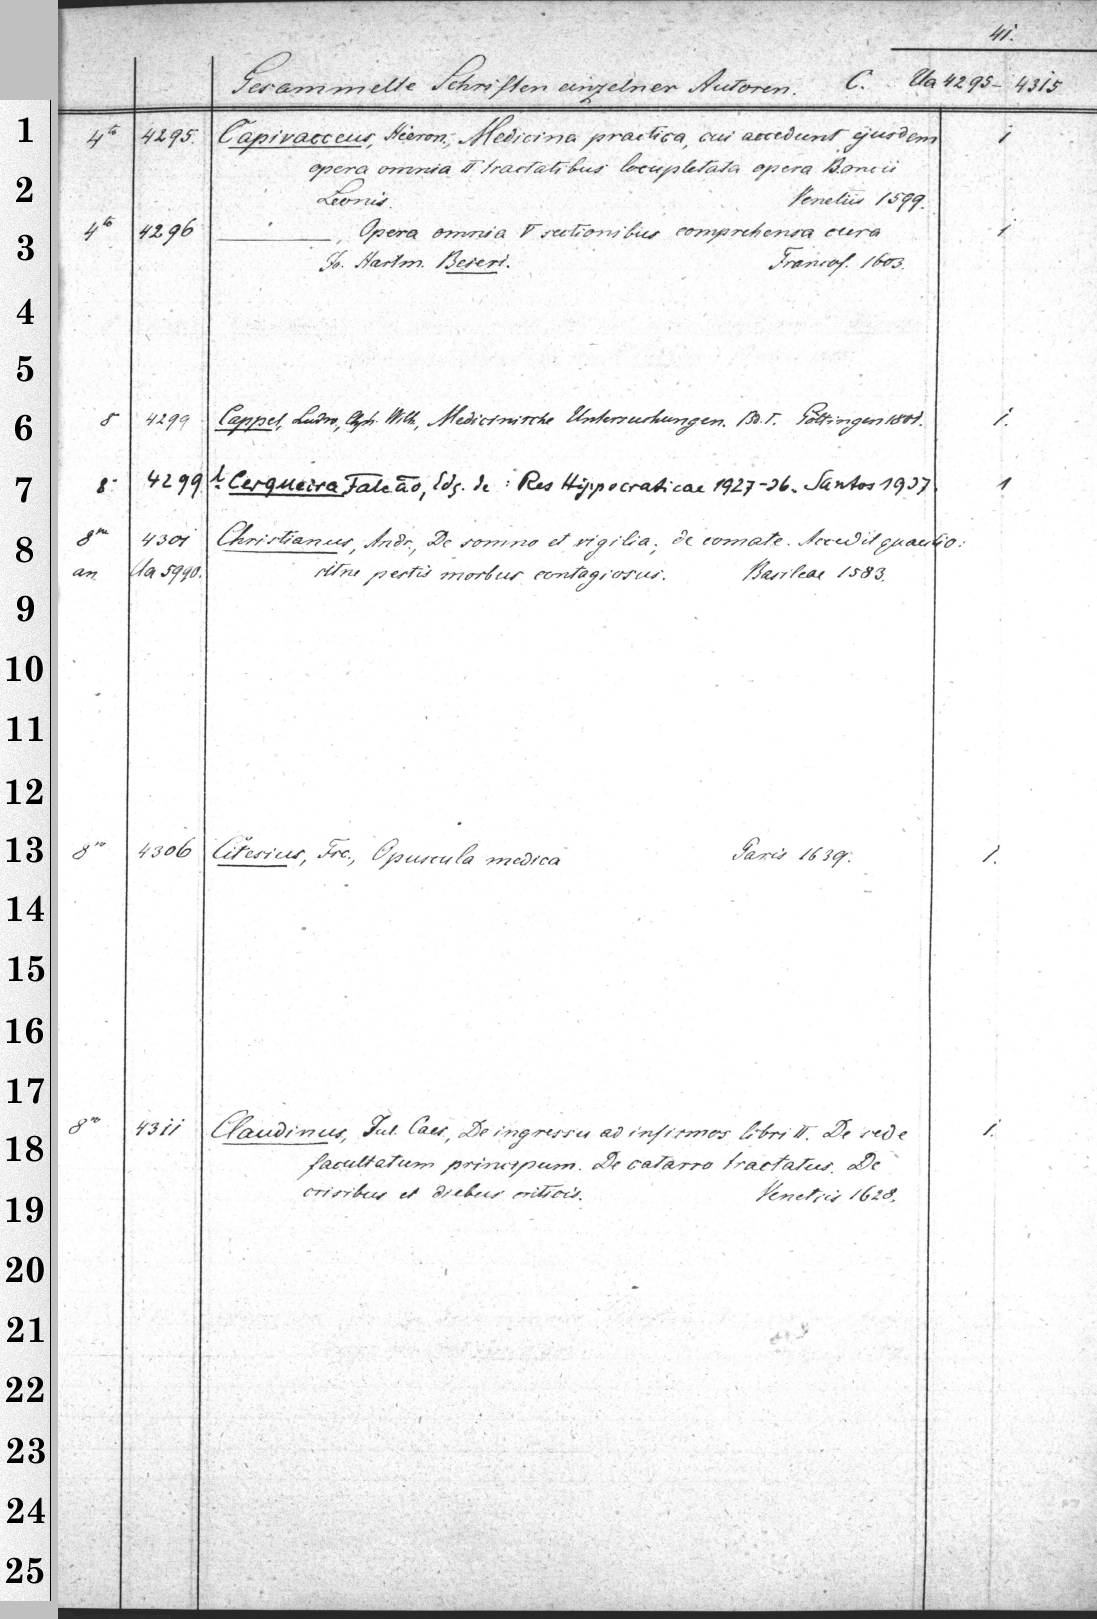 41.
Gesammelte Schriften einzelner Autoren. C. Ua 4295-4315
1
4to 4295. Capivacceus, Hieron., Medicina practica, cui accedunt ejusdem 1
opera omnia II tractatibus locupletata opera
2
Leonis. Venetiis 1599.
3
4to 4296 ———, Opera omnia V sectionibus comprehensa cura 1
Jo. Hartm. Beyeri. Francof. 1603.
4
5
6
8 4299 Cappel, Ludw. Chph. Wilh., Medicinische Untersuchungen. Bd. I. Göttingen 1801. 1.
7
8. 4299 b. Cerqueira Falcão, Edg. de : Res Hippocraticae 1927-36. Santos 1937. 1
8
8vo 4301 Christianus, Andr., De somno et vigilia; de comate. Accedit quaestio:
an Ua 5990. sitne pestis morbus contagiosus. Basileae 1583.
9
10
11
12
13
8vo 4306 Citesius, Frc., Opuscula medica Paris 1639. 1.
14
15
16
17
18
8vo 4311 Claudinus, Jul. Caes., De ingressu ad infirmos libri II. De sede 1.
facultatum principum. De catarro tractatus. De
19
crisibus et diebus criticis. Venetiis 1628.
20
21
22
23
24
25